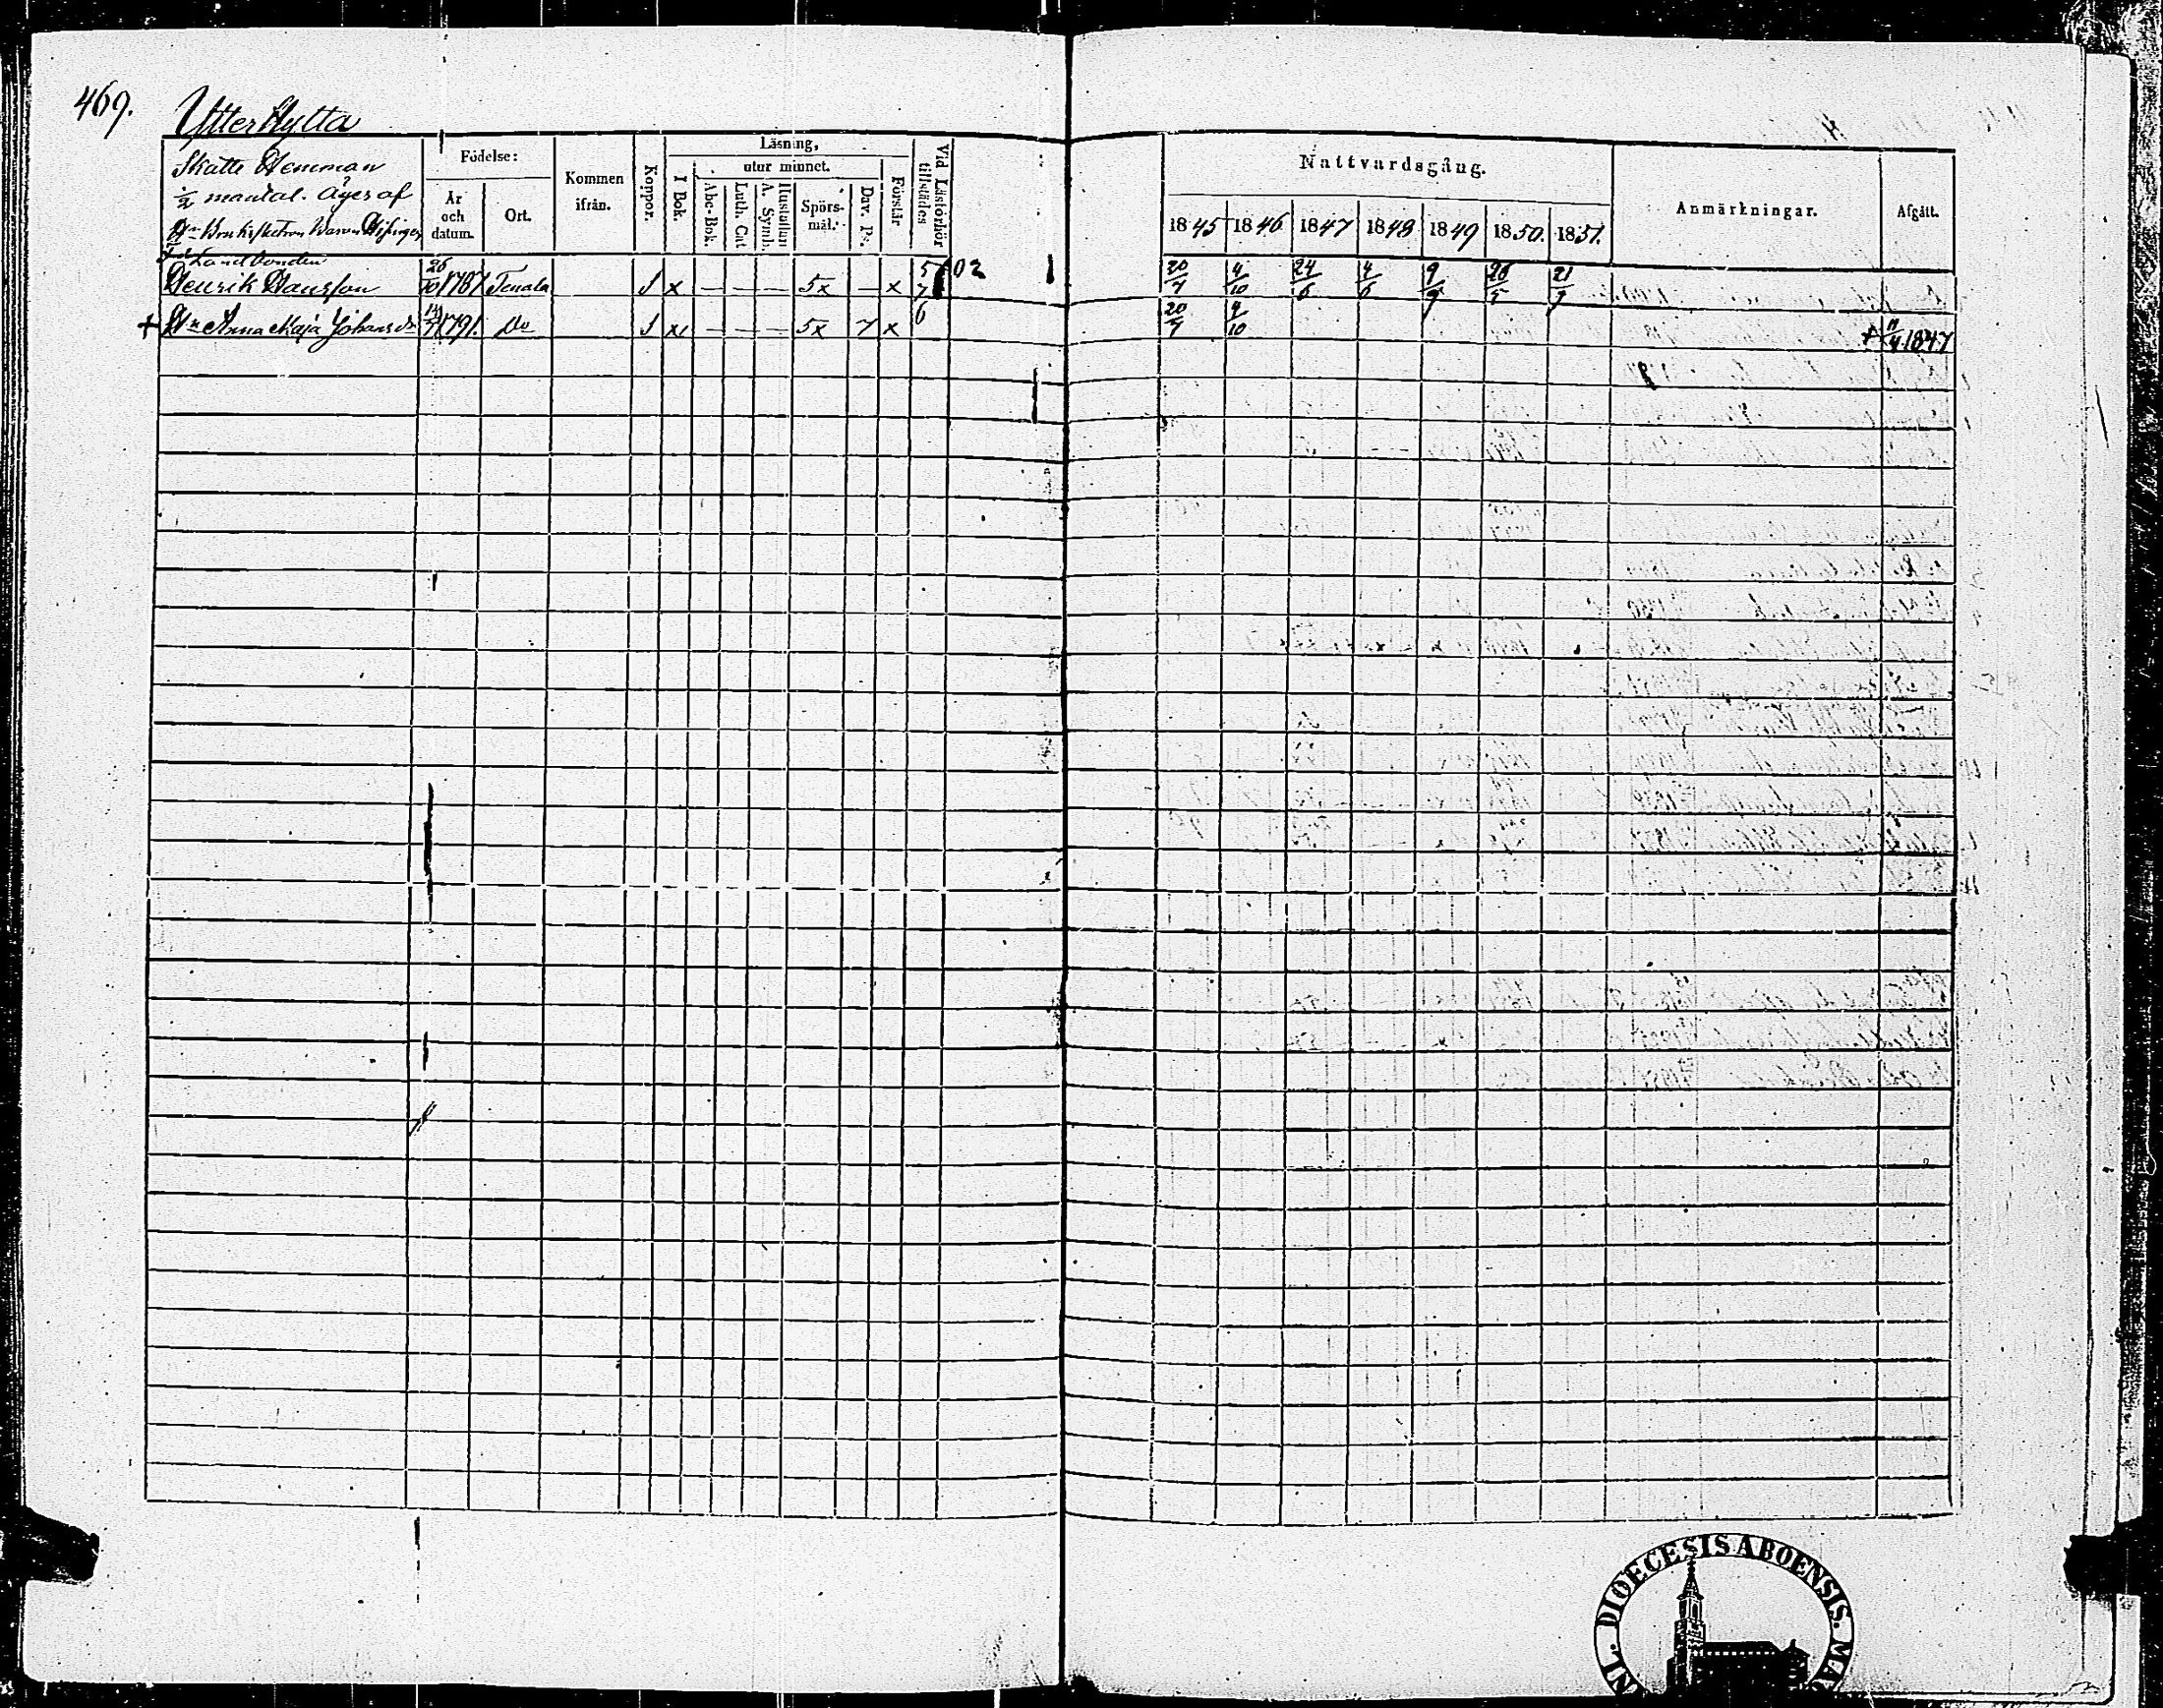 469.
Ytterkytta
Skatte Hemman
½ mantal. Äges af
Födelse:
År och datum.
Ort.
Kommen ifrån.
Koppor.
Läsning,
I Bok.
utur minnet.
Abc-Bok.
Luth. Cat
A. Symb.
Hustaflan
Spörsmål.
Dav. Ps.
Förstår
Vid Läsförhör tillstädes
Nattvardsgång.
1845 1846 1847 1848 1849 1850. 1851.
Anmärkningar.
Afgått.
Landbonden
Henrik Hansson 26/10 1787 Tenala S x — — — 5x — x 5 7 6 02 20/7 4/10 24/6 4/6 9/9 26/5 21/9
+ Hu Anna Maja Johansdr 14/7 1791. Do S x — — — 5x 7 x 20/7 4/10 + 11/4 1847
DIOECESIS ABOENSIS.